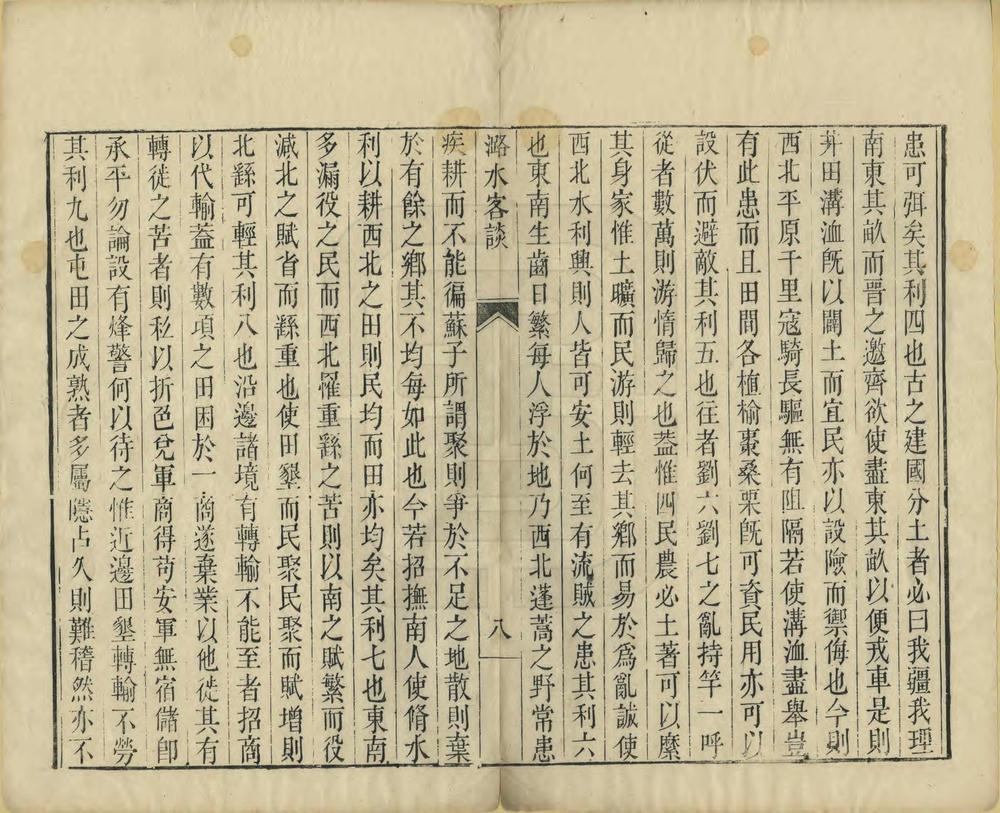 患可弭矣其利四也古之建國分土者必曰我疆我理
南東其畝而晉之邀齊欲使盡東其畝以便戎車是則
井田溝洫旣以闢土而宜民亦以設險而禦侮也今則
西北平原千里寇騎長驅無有阻隔若使溝洫盡舉豈
有此患而且田間各植榆棗桑栗旣可資民用亦可以
設伏而避敵其利五也往者劉六劉七之亂持竿一呼
從者數萬則游惰歸之也葢惟四民農必土著可以縻
其身家惟土曠而民游則輕去其鄉而易於爲亂誠使
西北水利興則人皆可安土何至有流賊之患其利六
也東南生齒日繁每人浮於地乃西北蓬蒿之野常患
潞水客談
八
疾耕而不能徧蘇子所謂聚則爭於不足之地散則棄
於有餘之鄉其不均每如此也今若招撫南人使脩水
利以耕西北之田則民均而田亦均矣其利七也東南
多漏役之民而西北罹重繇之苦則以南之賦繁而役
減北之賦省而繇重也使田墾而民聚民聚而賦增則
北繇可輕其利八也沿邊諸境有轉輸不能至者招商
以代輸葢有數項之田困於一商遂棄業以他徙其有
轉徙之苦者則私以折色兌軍商得苟安軍無宿儲卽
承平勿論設有烽警何以待之惟近邊田墾轉輸不勞
其利九也屯田之成熟者多屬隱占久則難稽然亦不